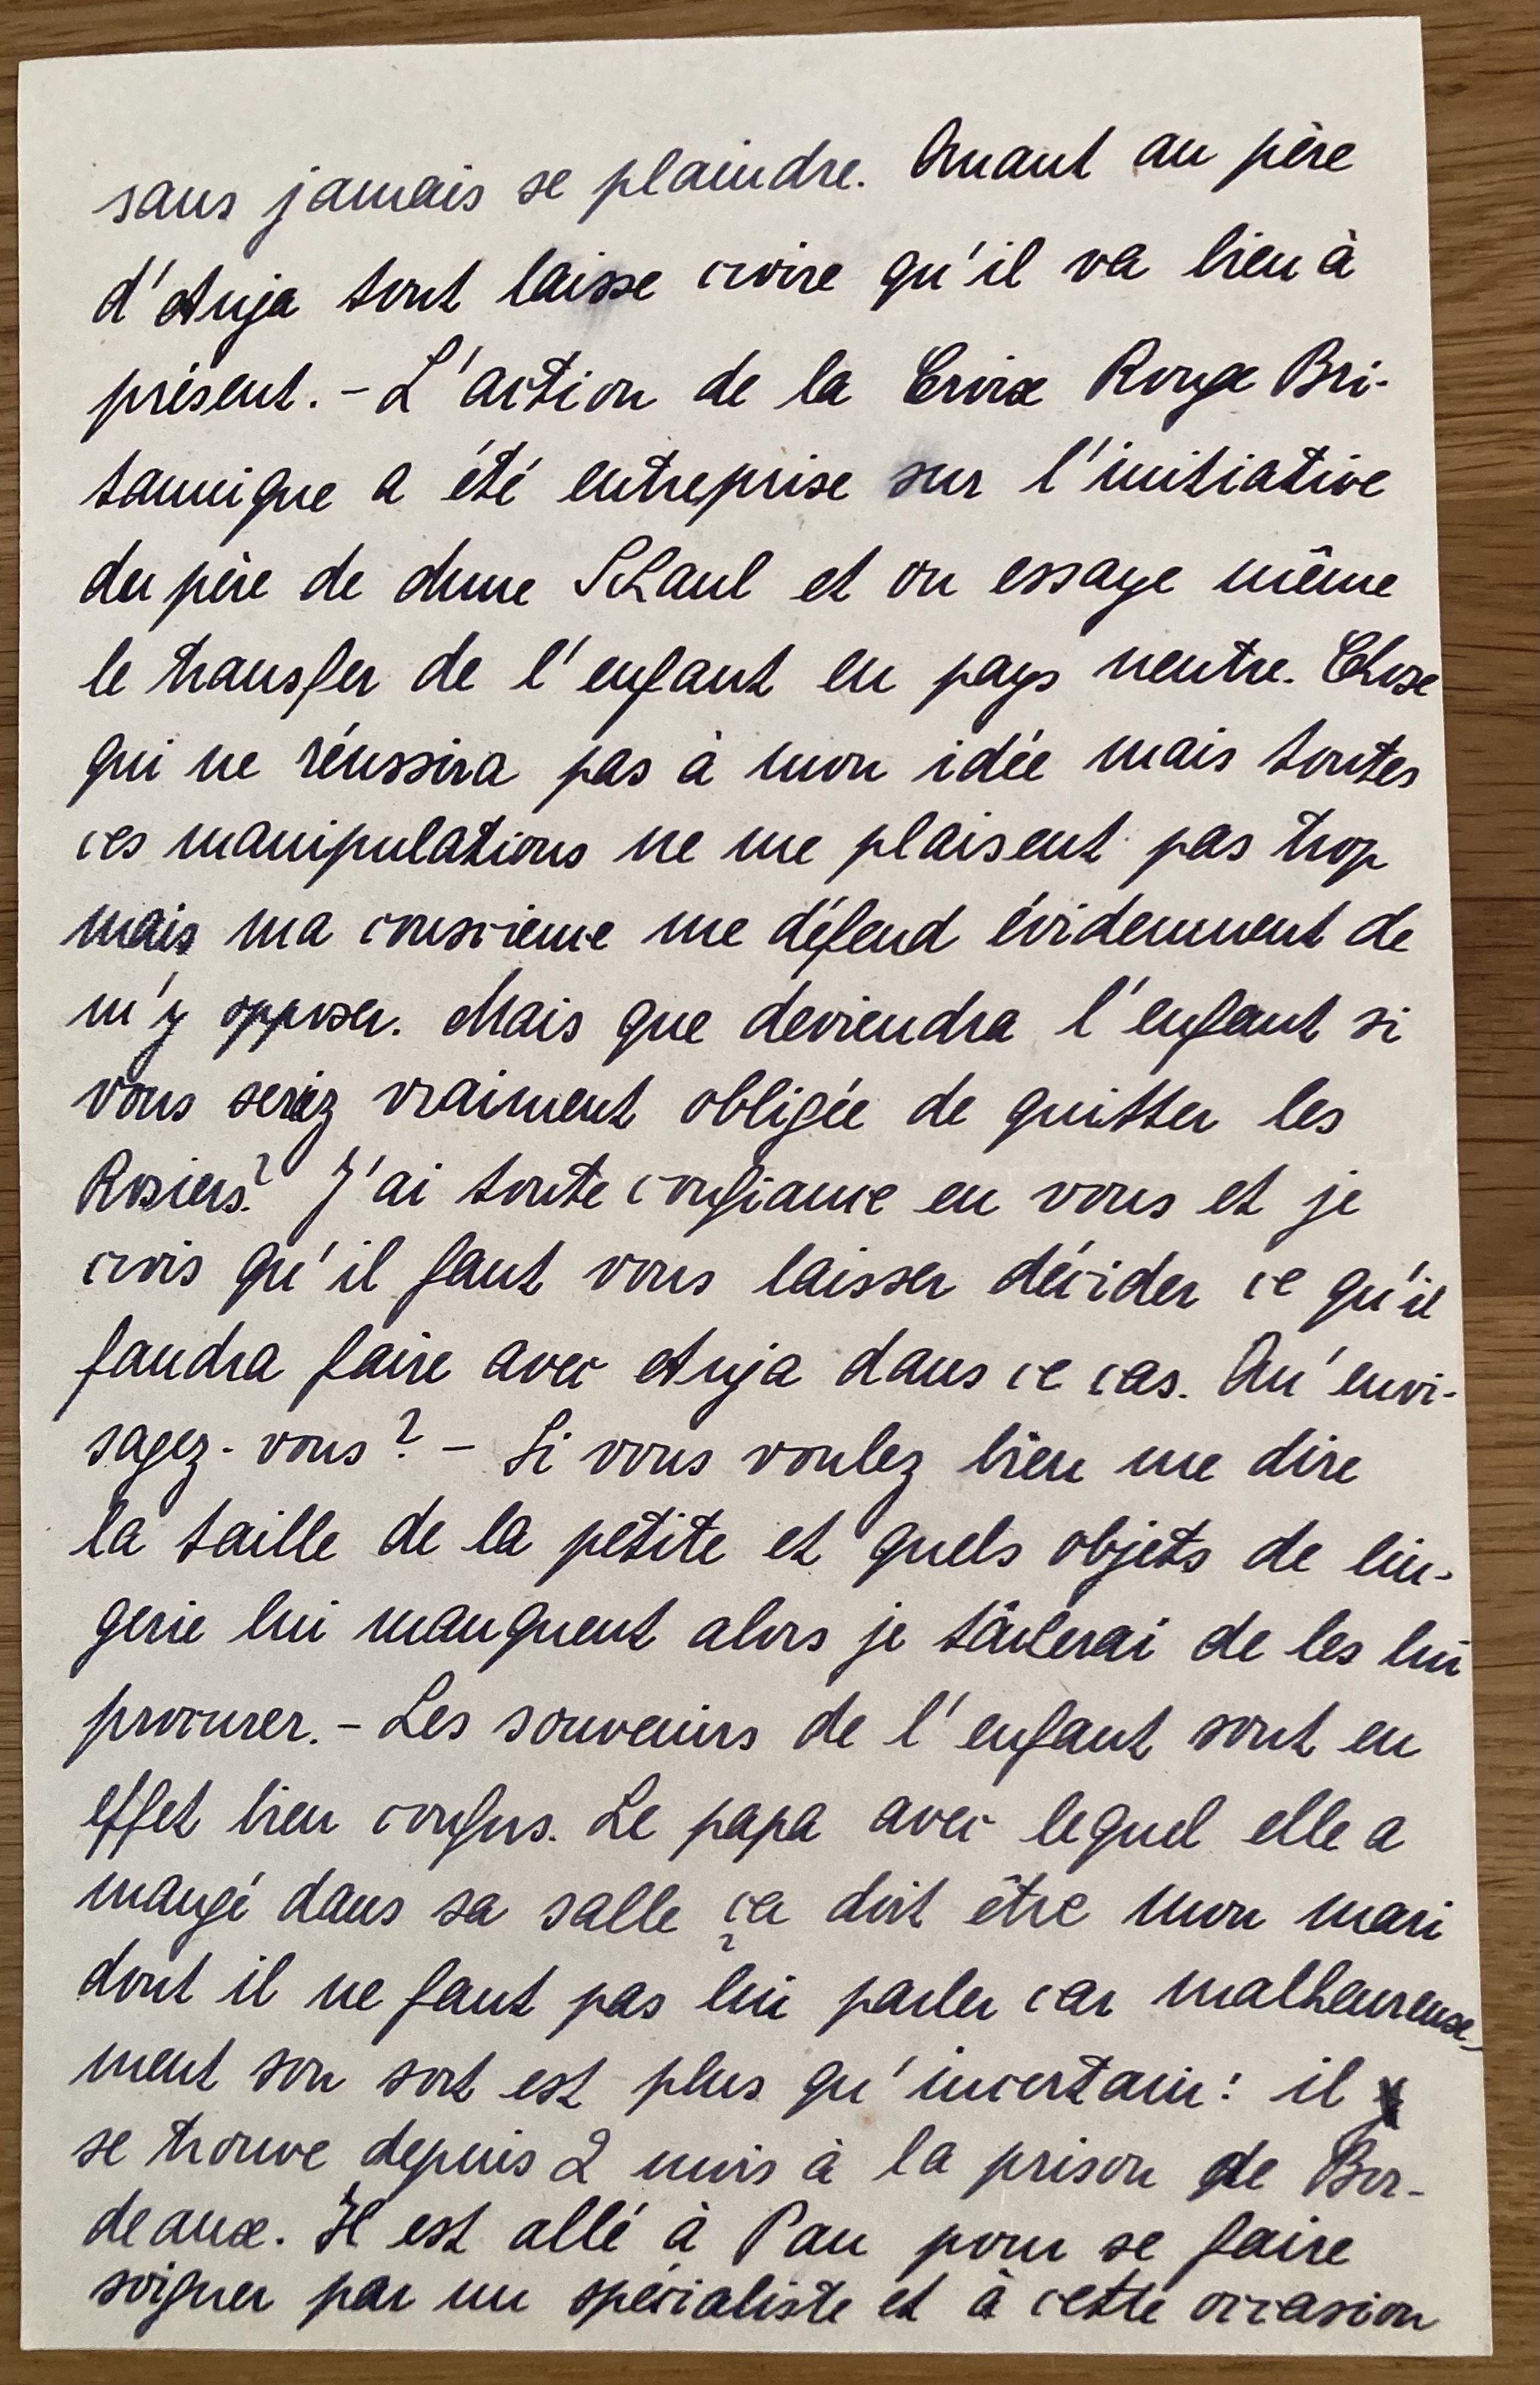 sans jamais se plaindre. Quant au père
d'Anja tout laisse croire qu'il va bien à
présent. - L'action de la Croix Rouge Bri-
tannique a été entreprise sur l'initiative
du père de Mme Schaul et on essaye même
le transfer de l'enfant en pays neutre. Chose
qui ne réussira pas à mon idée mais toutes
ces manipulations ne me plaisent pas trop
mais ma conscience me défend évidemment de
m'y opposer. Mais que deviendra l'enfant si
vous seriez vraiment obligée de quitter les
Rosiers? J'ai toute confiance en vous et je
crois qu'il faut vous laisser décider ce qu'il
faudra faire avec Anja dans ce cas. Qu'envi-
sagez-vous? - Si vous voulez bien me dire
la taille de la petite et quels objets de lin-
gerie lui manquent alors je tâcherai de les lui
procurer. - Les souvenirs de l'enfant sont en
effet bien confus. Le papa avec lequel elle a
mangé dans sa salle ça doit être mon mari
dont il ne faut pas lui parler car malheureuse-
ment son sort est plus qu'incertain: il
se trouve depuis 2 mois à la prison de Bor-
deaux. Il est allé à Pau pour se faire
soigner par un spécialiste et à cette occasion